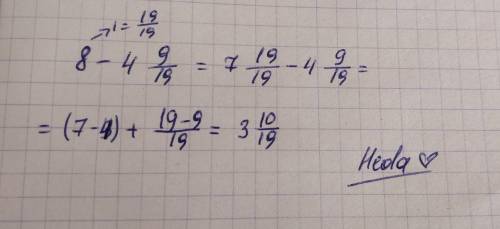 1 = 19/19
8 - 4 9/19 = 7 19/19 - 4 9/19 =
= (7-4) + 19-9/19 = 3 10/19
Heda ♡